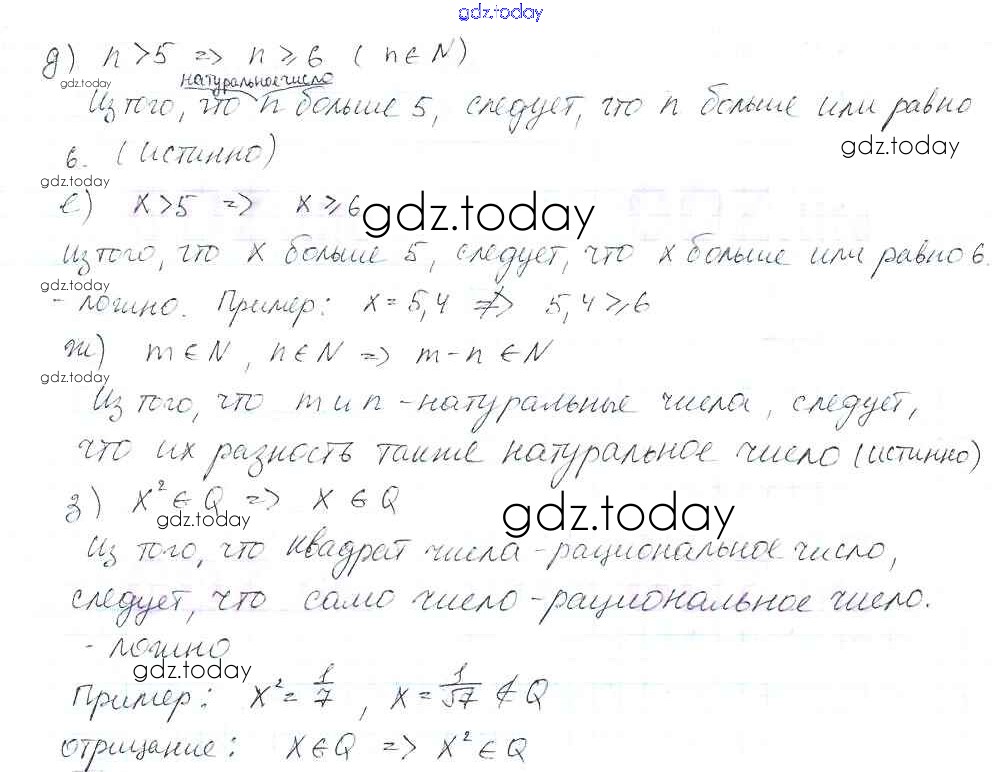 gdz.today
д) n > 5 => n ⩾ 6 ( n ∈ N)
gdz.today натуральное число
Из того, что n больше 5, следует, что n больше или равно
gdz.today
6. (истинно)
gdz.today
е) x > 5 => x ⩾ 6
gdz.today
Из того, что x больше 5, следует, что x больше или равно 6.
gdz.today
- ложно. Пример: x = 5,4 ≠> 5,4 ⩾ 6
ж) m ∈ N, n ∈ N => m - n ∈ N
gdz.today
Из того, что m и n - натуральные числа, следует,
что их разность также натуральное число (истинно)
з) x² ∈ Q => x ∈ Q
gdz.today gdz.today
Из того, что квадрат числа - рациональное число,
следует, что само число - рациональное число.
- ложно
gdz.today
Пример: x² = 1/7, x = 1/√7 ∉ Q
отрицание: x ∈ Q => x² ∈ Q